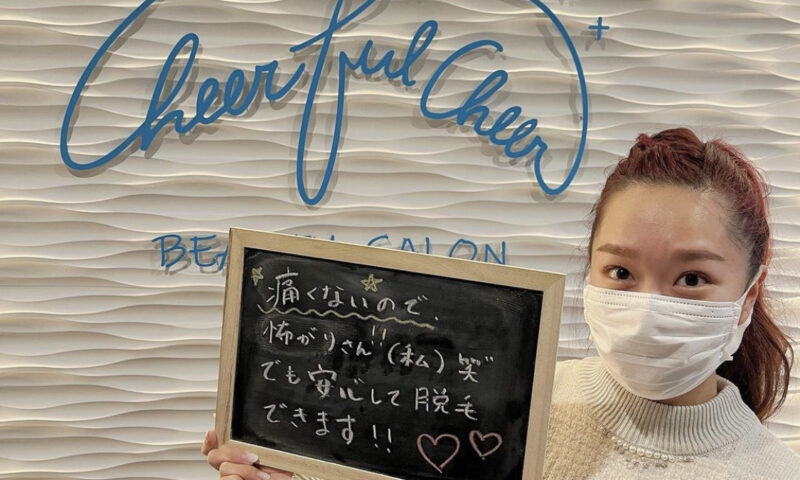 Cheerful Cheer+
BEAUTY SALON
痛くないので、
怖がりさん!!(私)笑
でも安心して脱毛
できます!!